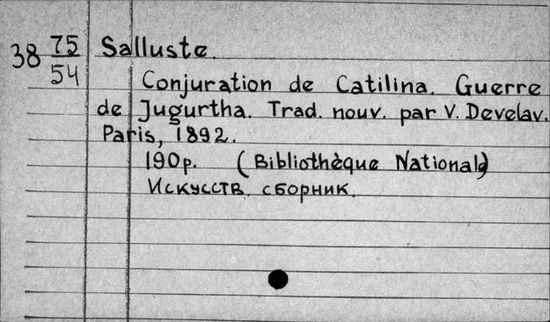 38 75/54 Salluste.
Conjuration de Catilina. Guerre
de Jugurtha. Trad. nouv. par V. Develav.
Paris, 1892.
190p. (Bibliothèque Nationale)
Искусств. сборник.